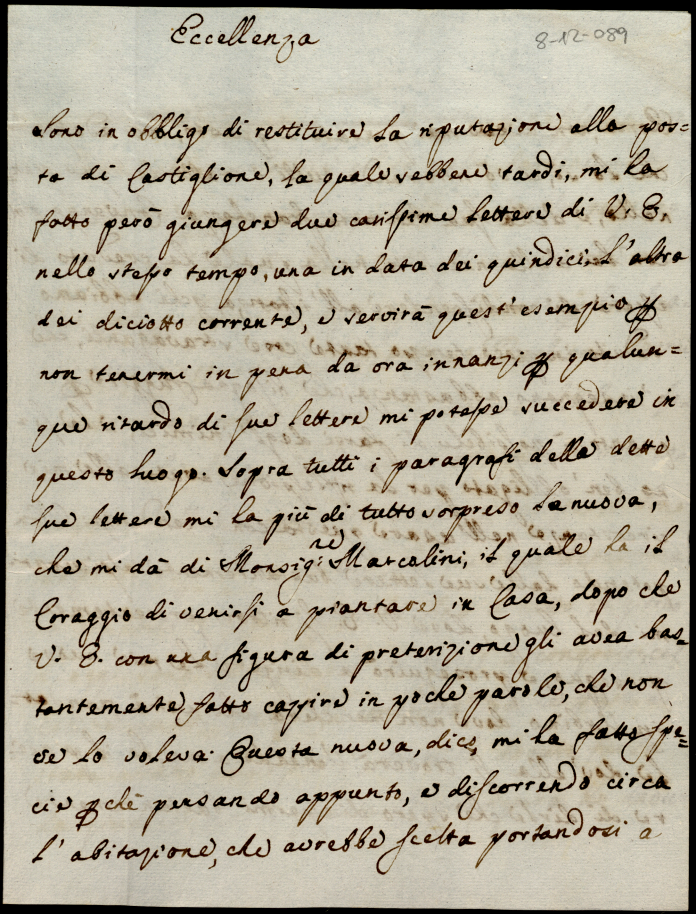 Eccellenza
8-12-089
Sono in obbligo di restituire la riputazione alla pos=
ta di Castiglione, la quale sebbene tardi, mi ha
fatto però giungere due carissime lettere di V. E.
nello stesso tempo, una in data dei quindici, l'altra
dei diciotto corrente, e servirà quest'esempio ꝑ
non tenermi in pena da ora innanzi ꝑ qualun=
que ritardo di sue lettere mi potesse succedere in
questo luogo. Sopra tutti i paragrafi della dette
sue lettere mi ha più di tutto sorpreso la nuova,
che mi dà di Monsig.re Marcolini, il quale ha il
Coraggio di venirsi a piantare in Casa, dopo che
V. E. con una figura di preterizione gli avea bas=
tantemente fatto cappire in poche parole, che non
ve lo voleva. Questa nuova, dico, mi ha fatto spe=
cie ꝑchè pensando appunto, e discorrendo circa
l'abitazione, che avrebbe scelta portandosi a